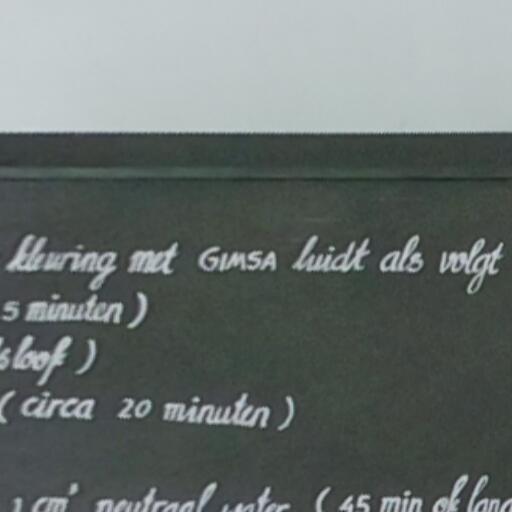 kleuring met GIMSA luidt als volgt
5 minuten)
sloof)
(circa 20 minuten)
1 cm³ neutraal water (45 min of lang